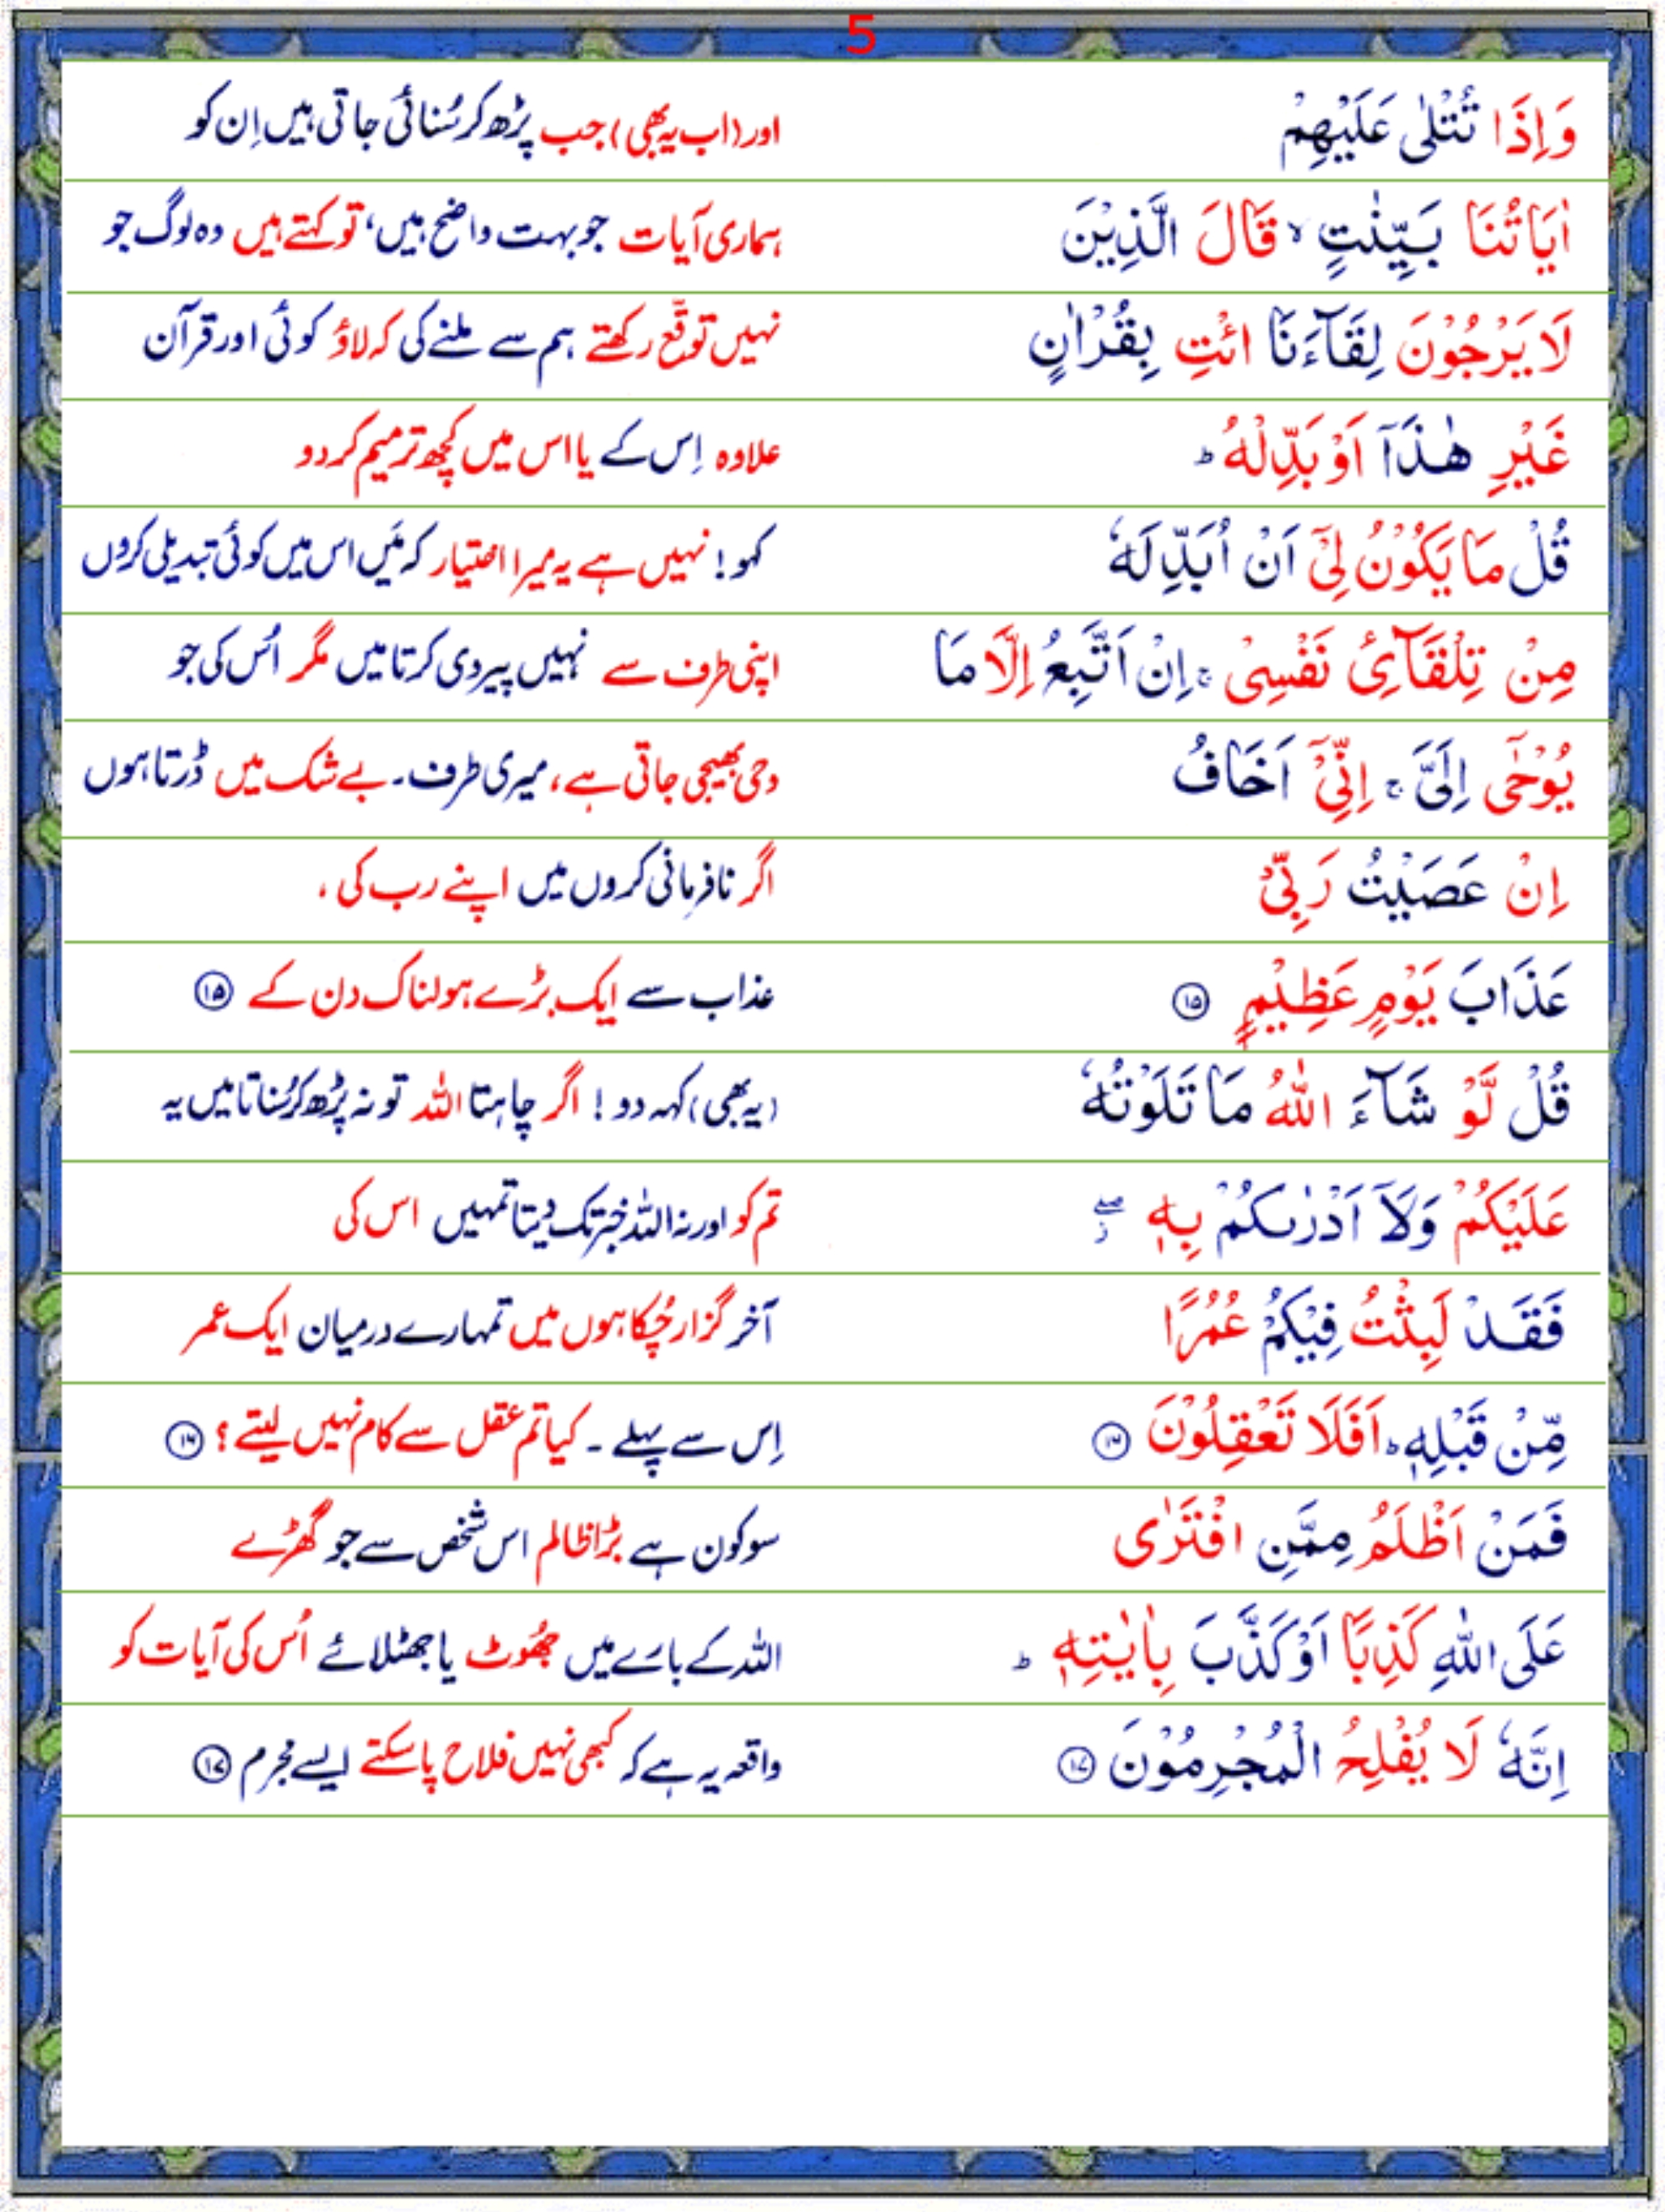 5
وَاِذَا تُتْلٰى عَلَيْهِمْ اور (اب یہ بھی) جب پڑھ کر سُنائی جاتی ہیں اِن کو
اٰيَاتُنَا بَيِّنٰتٍ ۙ قَالَ الَّذِيْنَ ہماری آیات جو بہت واضح ہیں، تو کہتے ہیں وہ لوگ جو
لَا يَرْجُوْنَ لِقَآءَنَا ائْتِ بِقُرْاٰنٍ نہیں توقّع رکھتے ہم سے ملنے کی کہ لاؤ کوئی اور قرآن
غَيْرِ هٰذَآ اَوْ بَدِّلْهُ ؕ علاوہ اِس کے یا اس میں کچھ ترمیم کردو
قُلْ مَا يَكُوْنُ لِيْٓ اَنْ اُبَدِّلَهٗ کہو! نہیں ہے یہ میرا اختیار کہ مَیں اس میں کوئی تبدیلی کروں
مِنْ تِلْقَآئِ نَفْسِيْ ۚ اِنْ اَتَّبِعُ اِلَّا مَا اپنی طرف سے نہیں پیروی کرتا میں مگر اُس کی جو
يُوْحٰٓى اِلَيَّ ۚ اِنِّيْٓ اَخَافُ وحی بھیجی جاتی ہے، میری طرف۔ بے شک میں ڈرتا ہوں
اِنْ عَصَيْتُ رَبِّيْ اگر نافرمانی کروں میں اپنے رب کی،
عَذَابَ يَوْمٍ عَظِيْمٍ ۝۱۵ عذاب سے ایک بڑے ہولناک دن کے ۝۱۵
قُلْ لَّوْ شَآءَ اللّٰهُ مَا تَلَوْتُهٗ (یہ بھی) کہہ دو! اگر چاہتا اللہ تو نہ پڑھ کر سُناتا میں یہ
عَلَيْكُمْ وَلَآ اَدْرٰىكُمْ بِهٖ ۖ تم کو اور نہ اللہ خبر تک دیتا تمہیں اس کی
فَقَدْ لَبِثْتُ فِيْكُمْ عُمُرًا آخر گزار چُکا ہوں میں تمہارے درمیان ایک عمر
مِّنْ قَبْلِهٖ ؕ اَفَلَا تَعْقِلُوْنَ ۝۱۶ اِس سے پہلے۔ کیا تم عقل سے کام نہیں لیتے؟ ۝۱۶
فَمَنْ اَظْلَمُ مِمَّنِ افْتَرٰى سو کون ہے بڑا ظالم اس شخص سے جو گھڑے
عَلَى اللّٰهِ كَذِبًا اَوْ كَذَّبَ بِاٰيٰتِهٖ ؕ اللہ کے بارے میں جھُوٹ یا جھٹلائے اُس کی آیات کو
اِنَّهٗ لَا يُفْلِحُ الْمُجْرِمُوْنَ ۝۱۷ واقعہ یہ ہے کہ کبھی نہیں فلاح پاسکتے ایسے مجرم ۝۱۷